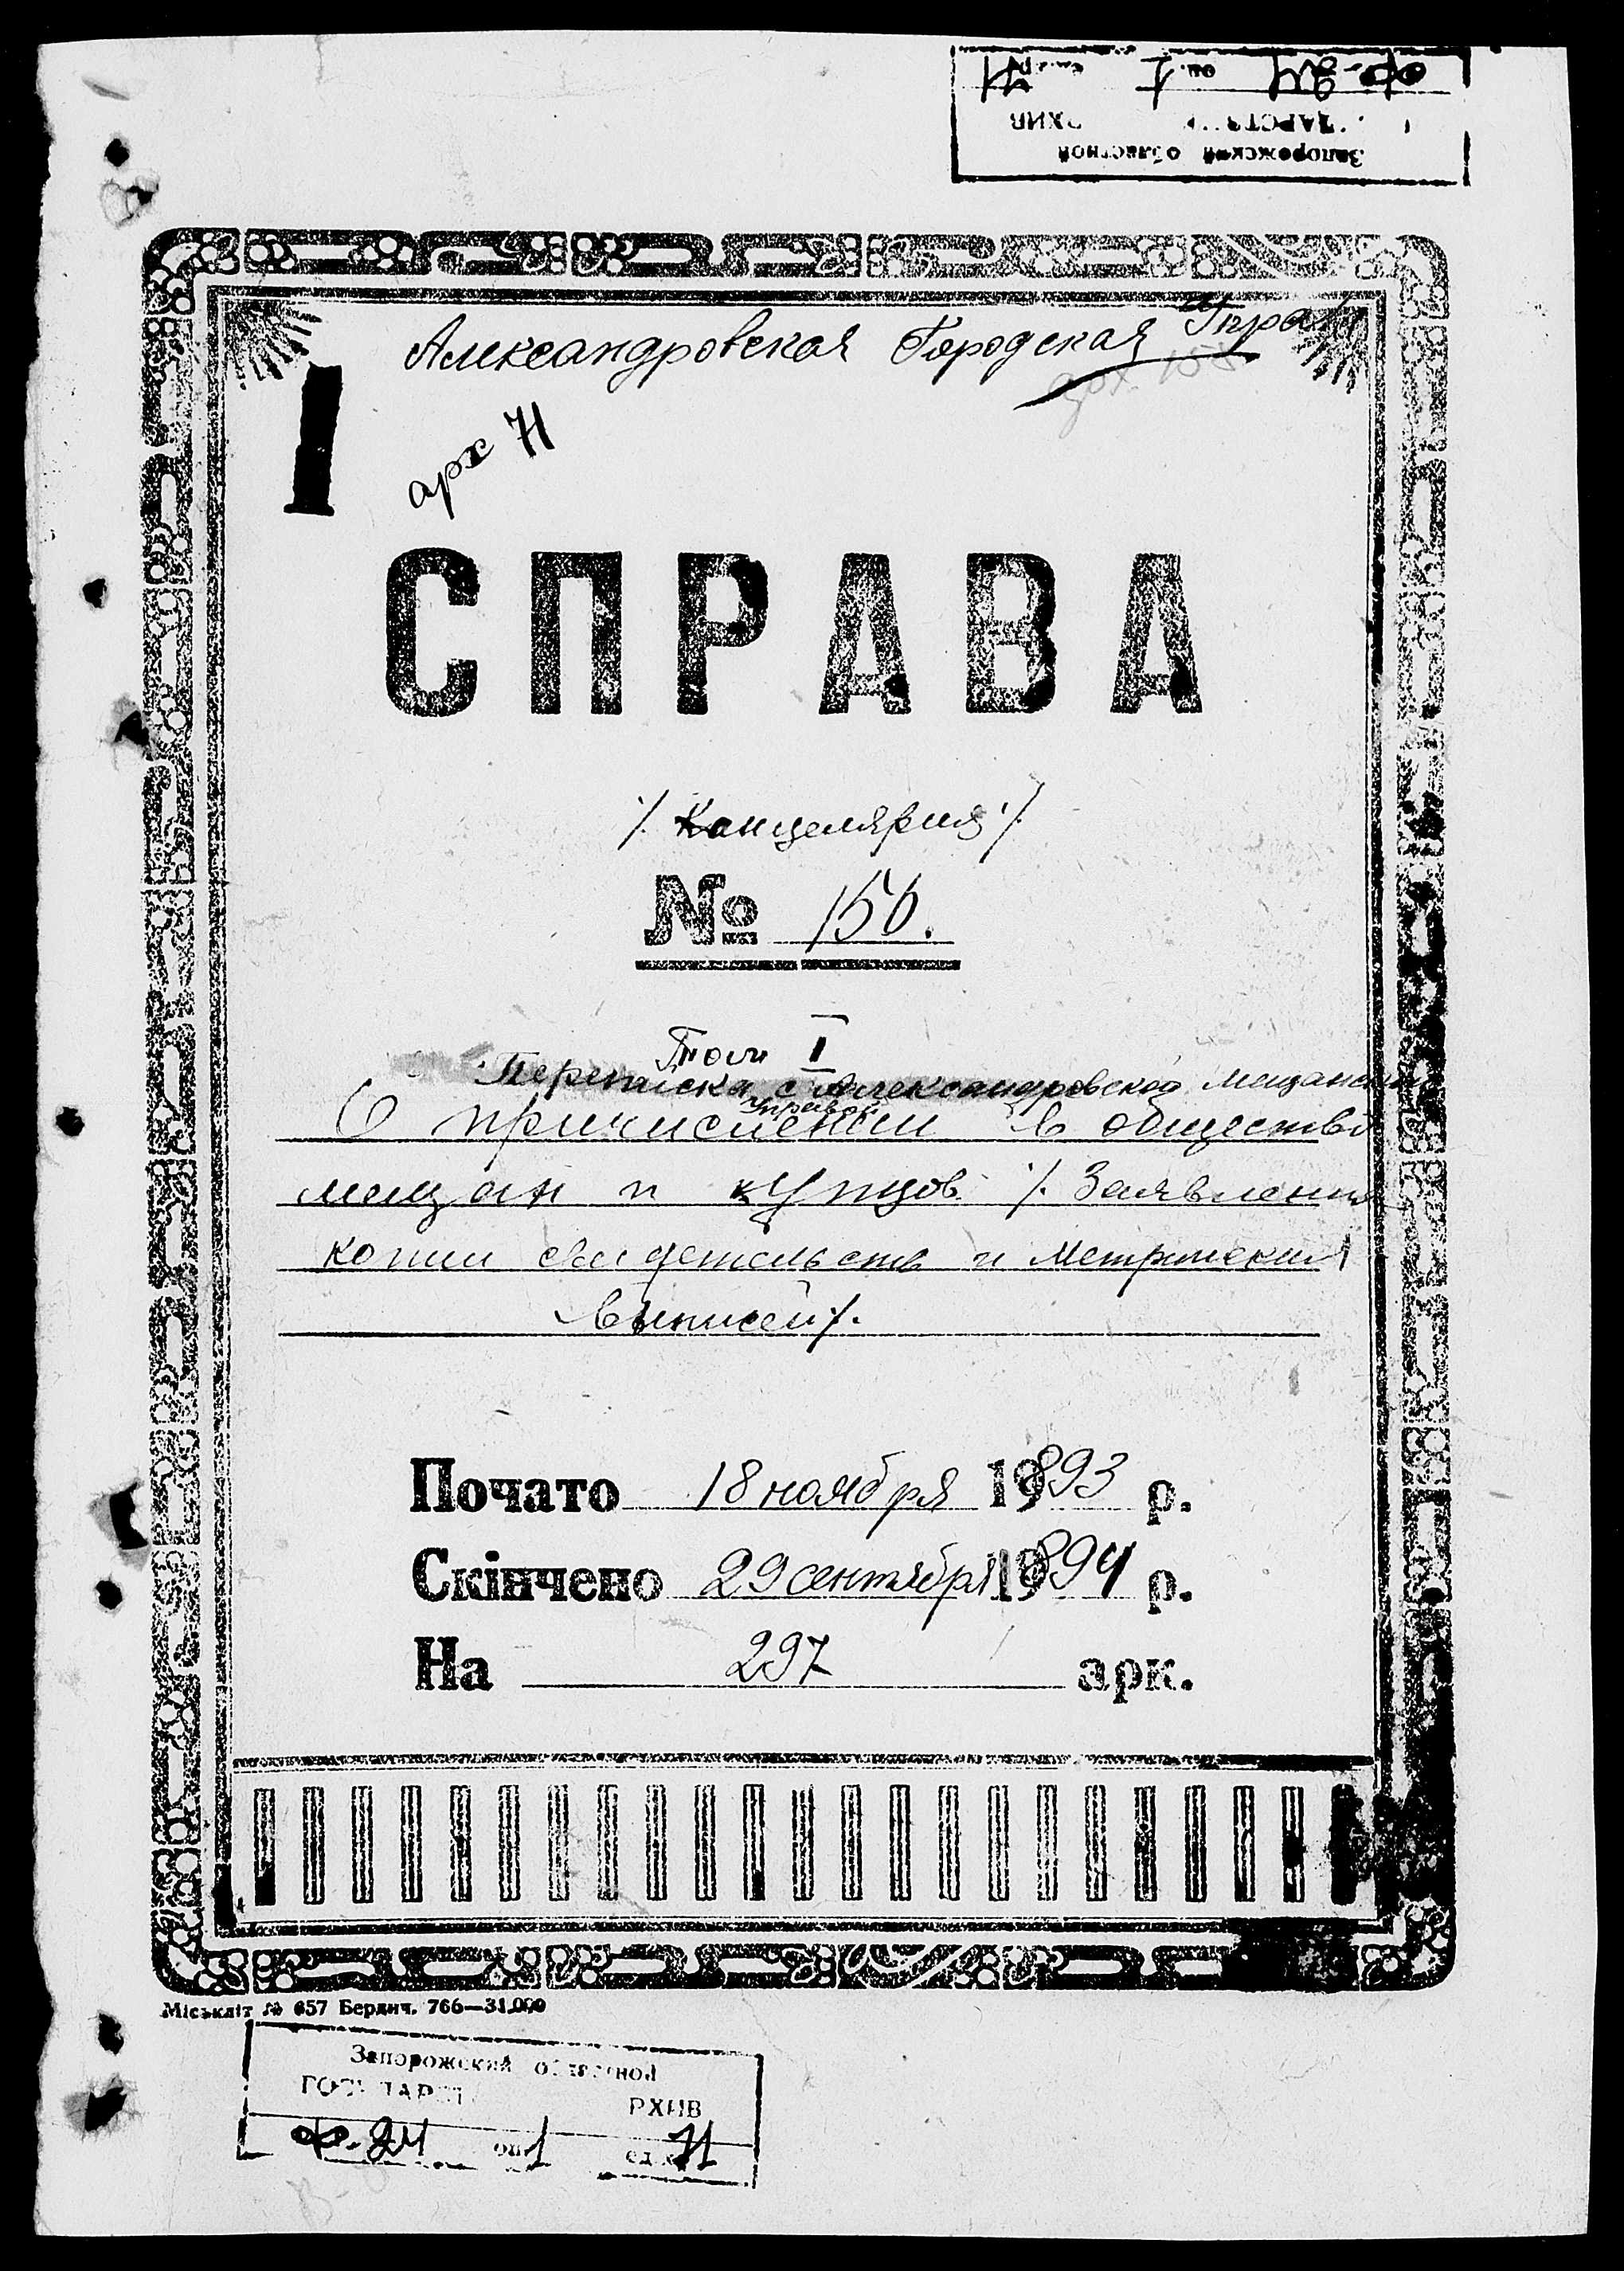 Запорожский областной
ф-24 оп. 1 71
Александровская Городская Упра
I
арх 71
СПРАВА
/. Канцелярия /.
№ 156.
Том I
Переписка с Александровской мещанской
управой
О причислении в общество
мещан и купцов /. Заявления
копии свидетельств и метрических
выписей /.
Почато 18 ноября 1893 р.
Скінчено 29 сентября 1894 р.
На 297 арк.
Міськліт № 657 Бердич. 766—31.000
Запорожский областной
ф-24 оп 1 ед. 71